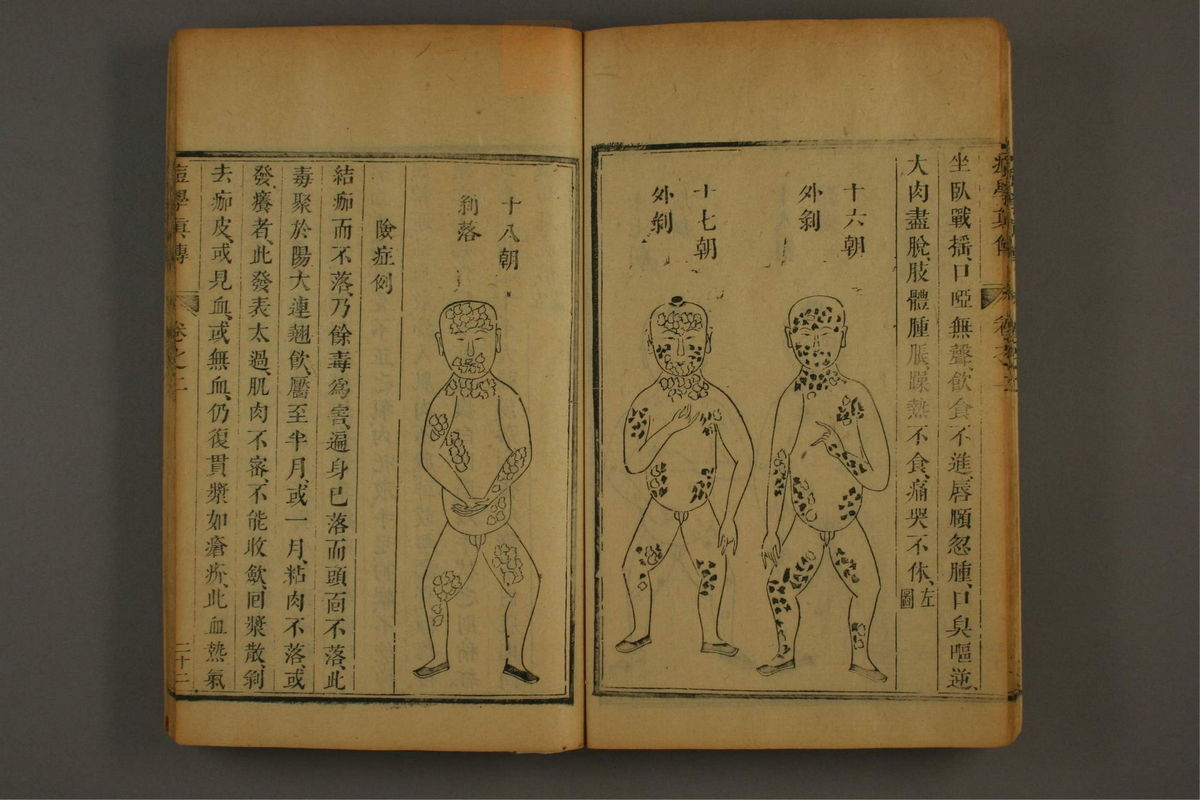 坐臥戰揺、口啞無聲、飲食不進、唇頤忽腫、口臭嘔逆、
大肉盡脫、肢體腫脹、躁熱不食、痛哭不休、左圖
十六朝
外剝
十七朝
外剝
十八朝
剝落
險症例
結痂而不落、乃餘毒爲害、遍身已落而頭面不落、此
毒聚於陽、大連翹飲、靨至半月、或一月、粘肉不落、或
發癢者、此發表太過、肌肉不密、不能收歛、回漿散、剝
去痂皮、或見血、或無血、仍復貫漿如瘡疥、此血熱氣
痘學眞傳
卷之二
二十二